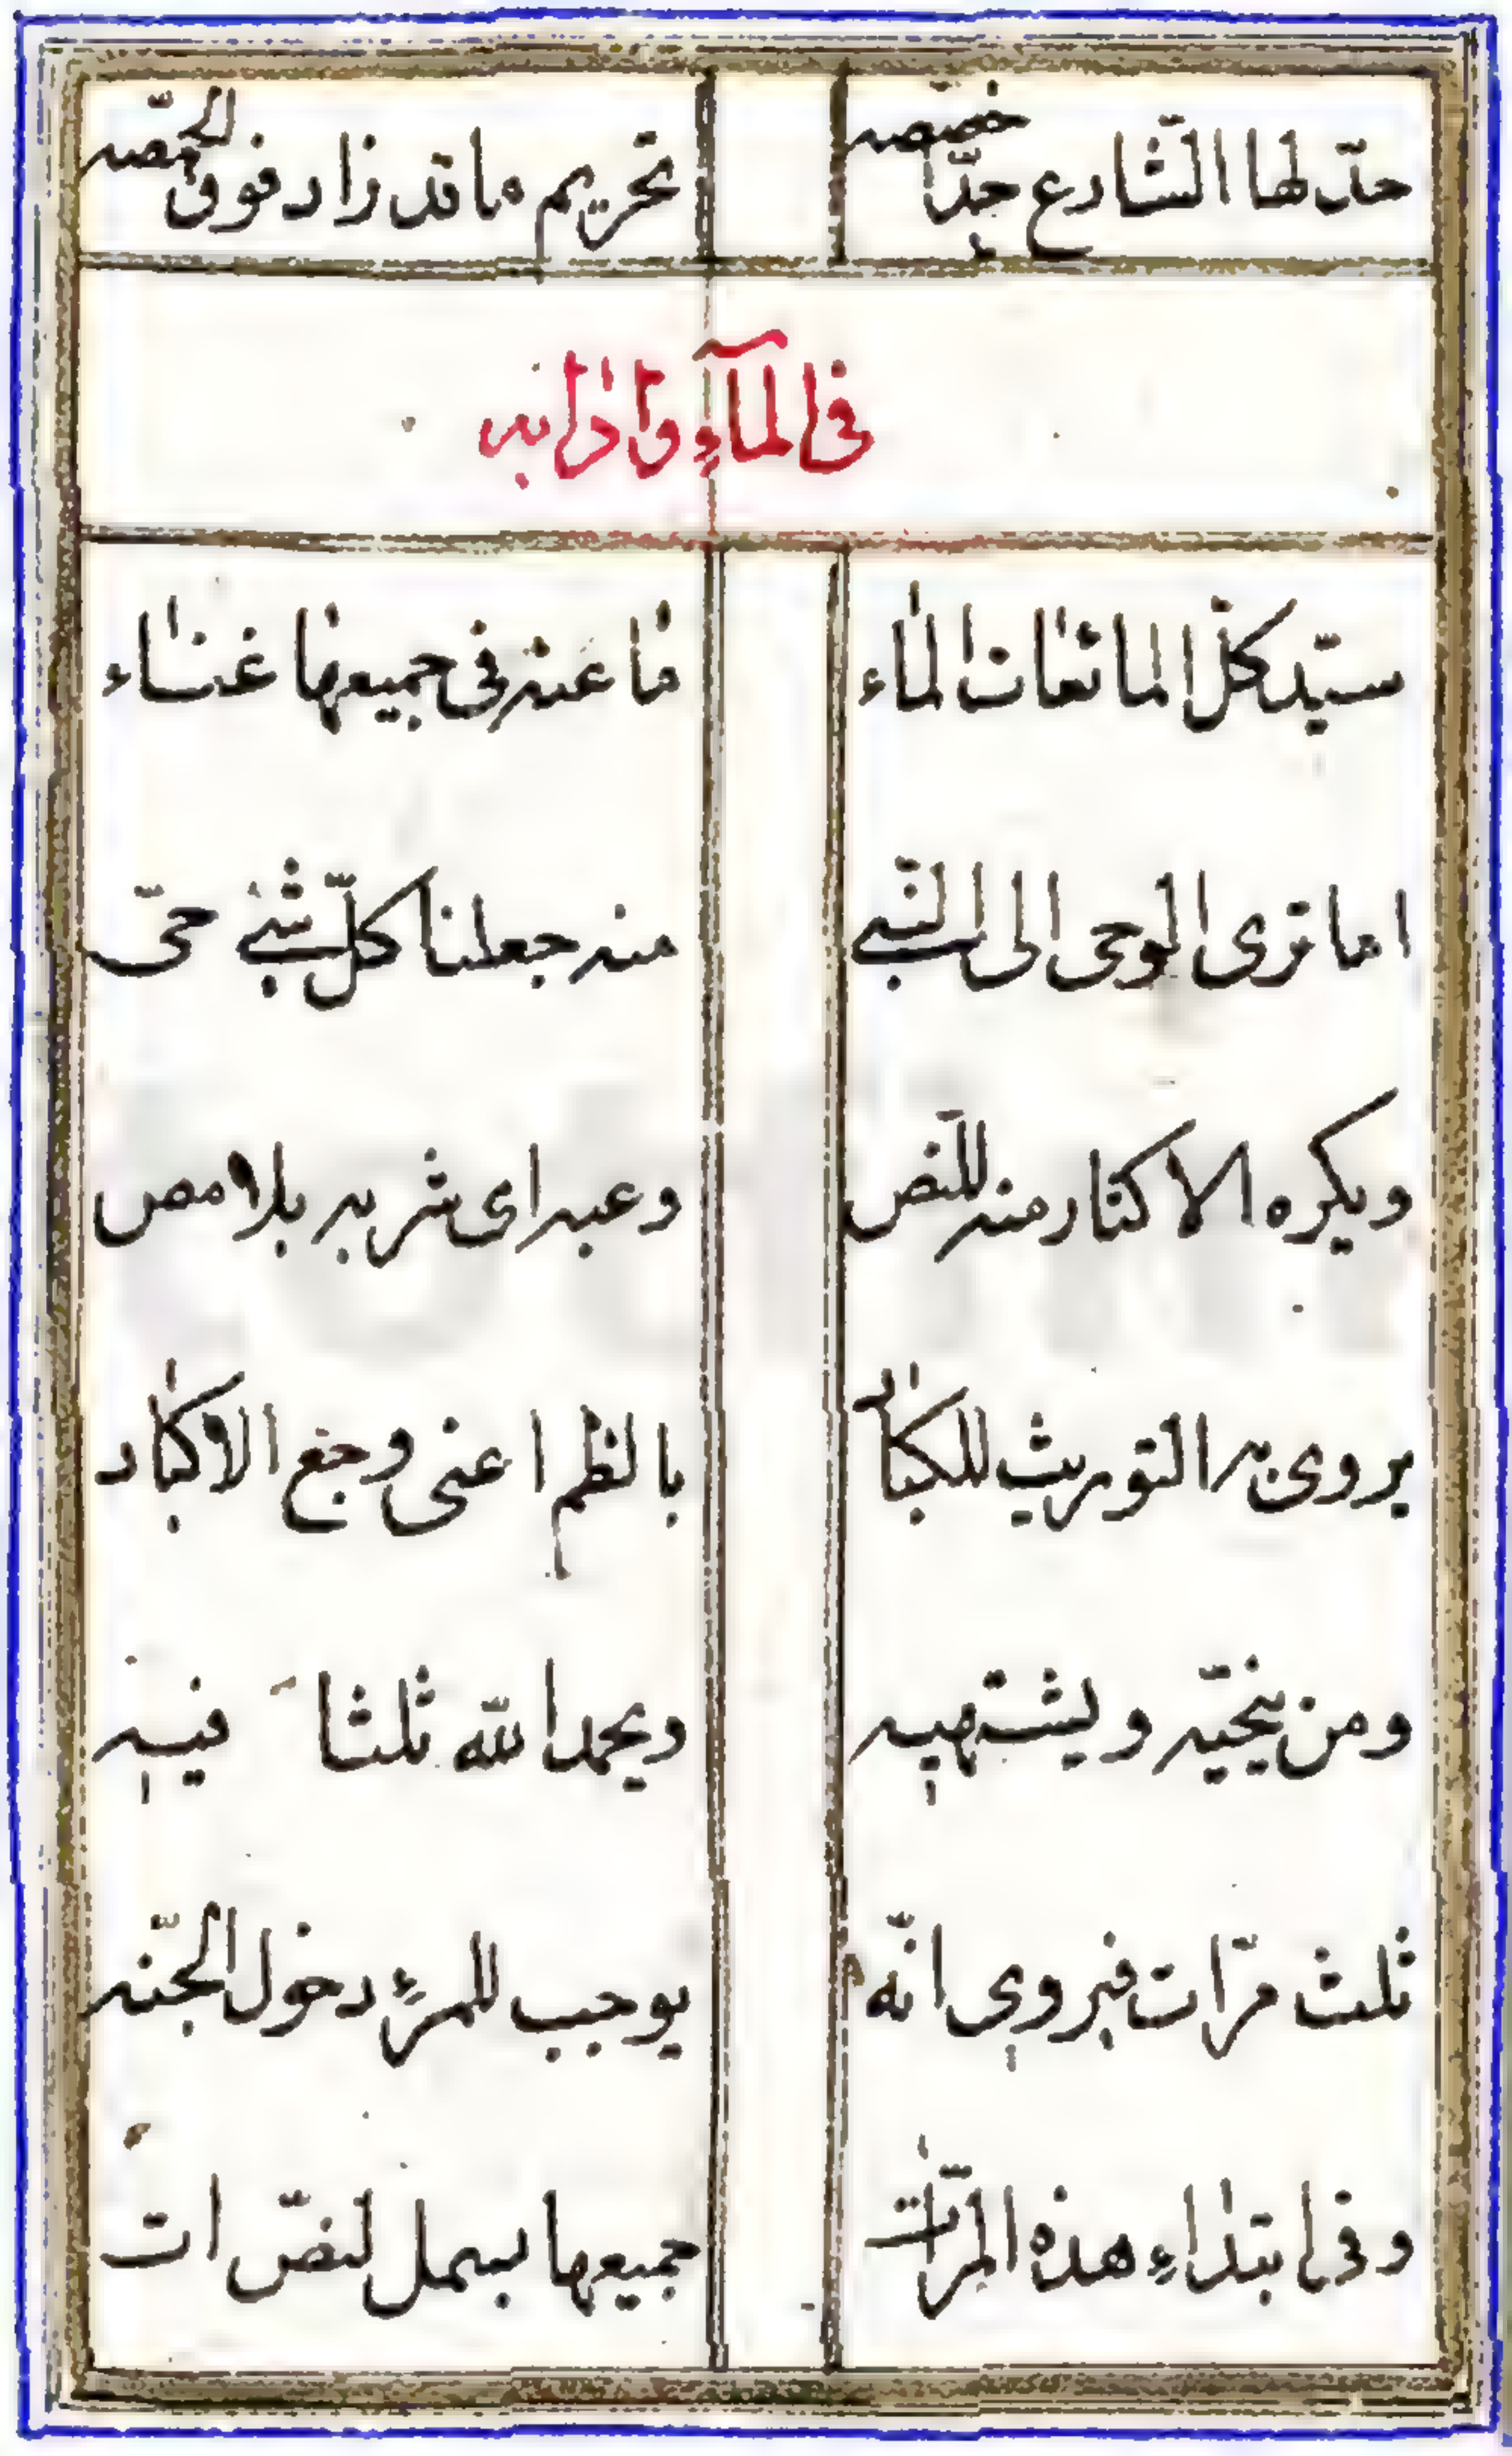 حدّ لها الشّارع حدّا خصّصه    تحريم ما قد زاد فوق الحمّصه
فى المآءِ واٰدابه
سيّد كلّ المائعات الماء    ما عنه فى جميعها غناء
اما ترى الوحى الى النّبى    منه جعلنا كلّ شئ حىّ
ويكره الاكثار منه للنّص    وعبه اى شربه بلا مص
يروى به التوريث للكباد    بالظم اعنى وجع الاكباد
ومن ينحّيه ويشتهيه    ويحمد الله ثلثا فيه
ثلث مرّات فيروى انّه    يوجب للمرء دخول الجنّه
وفى ابتداءِ هذه المرّات    جميعها بسمل لنصّ ات